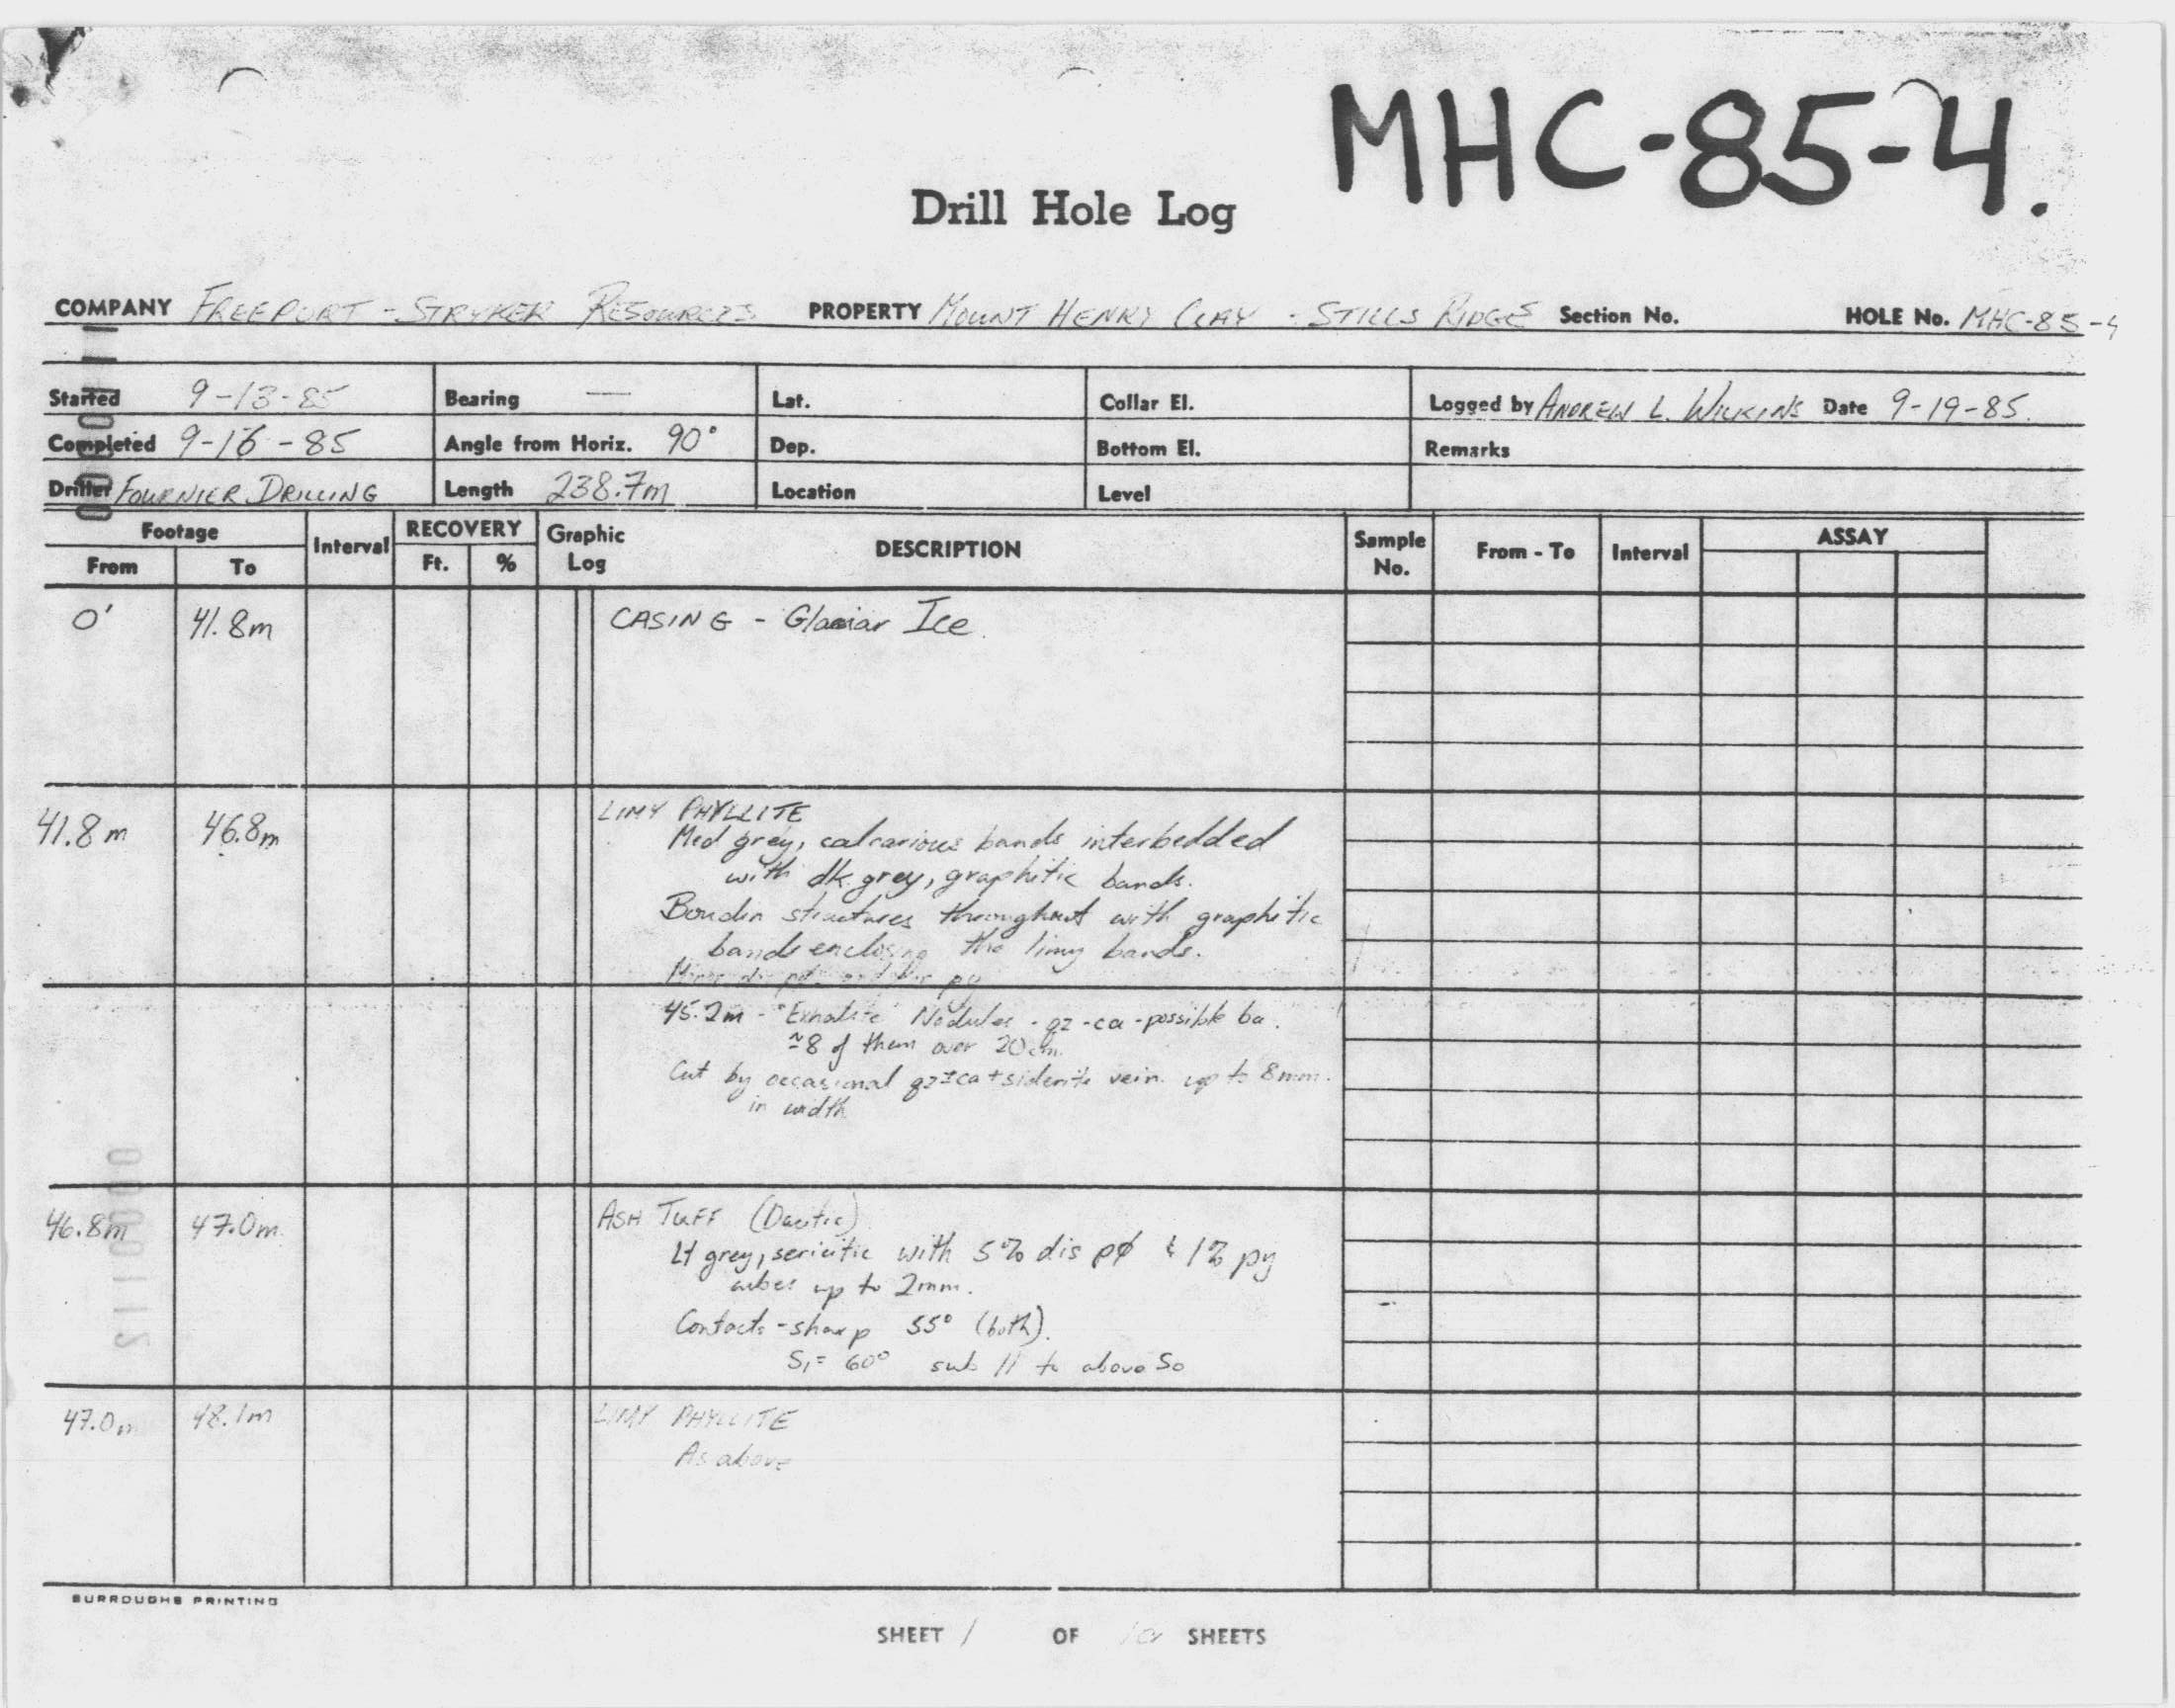 MHC-85-4.
Drill Hole Log
COMPANY FREEPORT - STRYKER RESOURCES PROPERTY MOUNT HENRY CLAY - STILLS RIDGE Section No. HOLE No. MHC-85-4
Started 9-13-85 Bearing — Lat. Collar El. Logged by ANDREW L. WILKINS Date 9-19-85.
Completed 9-16-85 Angle from Horiz. 90° Dep. Bottom El. Remarks
Driller FOURNIER DRILLING Length 238.7m Location Level
Footage Interval RECOVERY Graphic Log DESCRIPTION Sample No. From - To Interval ASSAY
From To Ft. %
0' 41.8m CASING - Glaciar Ice.
41.8m 46.8m LIMY PHYLLITE
Med grey, calcarious bands interbedded
with dk. grey, graphitic bands.
Boudin structures throughout with graphitic
bands enclosing the limy bands.
Minor py
45.2m - "Exhalite" Nodules - qz-ca-possible ba.
≈8 of them over 20cm.
Cut by occasional qz±ca+siderite vein up to 8mm.
in width
46.8m 47.0m ASH TUFF (Dacitic)
Lt grey, sericitic with 5% dis pø & 1% py
cubes up to 2mm.
Contacts - sharp 55° (both).
S1= 60° sub // to above So
47.0m 48.1m LIMY PHYLLITE
As above
BURROUGHS PRINTING
SHEET 1 OF SHEETS